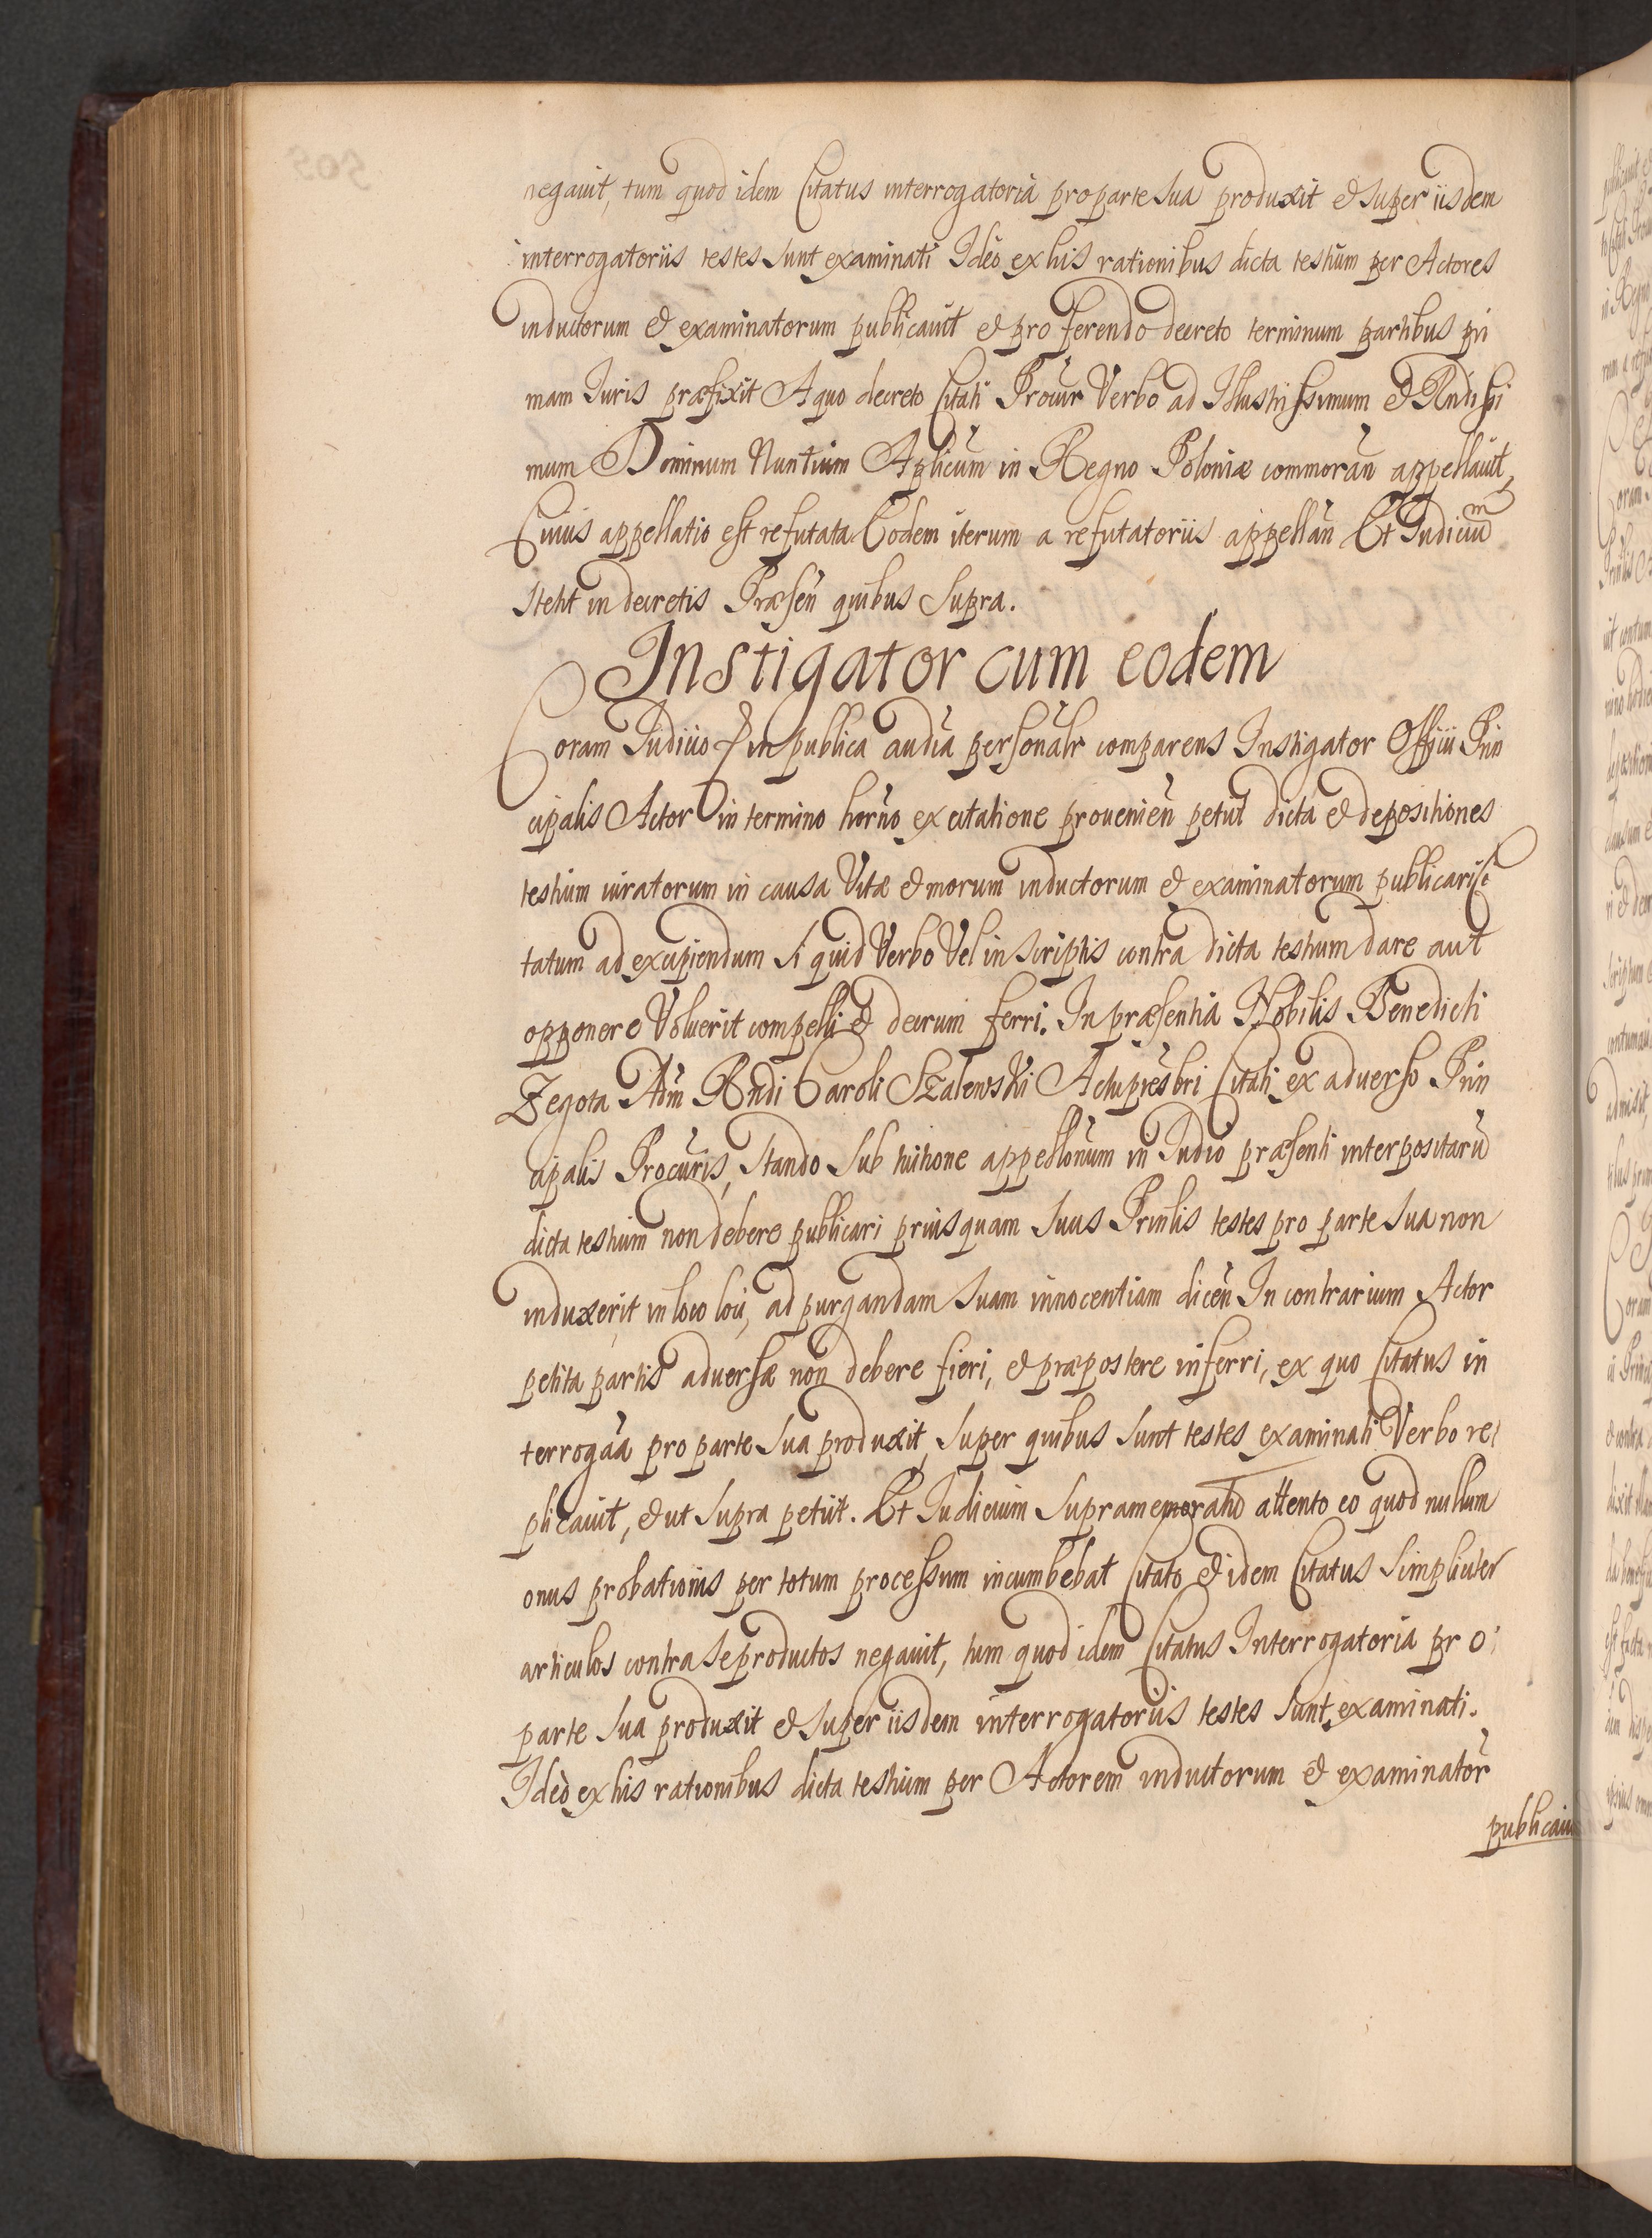 negauit, tum quod idem Citatus interrogatoria pro parte sua produxit et super iisdem
interrogatoriis testes sunt examinati Ideo ex his rationibus dicta testium per Actores
inductorum et examinatorum publicauit et pro ferendo decreto terminum partibus pri
mam Iuris præfixit A quo decreto Citati Procur Verbo ad Illustrissimum et Rndissi
mum Dominum Nuntium Aplicum in Regno Poloniæ commoran appellauit,
Cuius appellatio est refutata Eodem iterum a refutatoriis appellan Et Iudicium
stetit in decretis Præsen quibus supra.
Instigator cum eodem
Coram Iudicio et in publica audia personalr comparens Instigator Officii Prin
cipalis Actor in termino horno ex citatione prouenien petut dicta et depositiones
testium iuratorum in causa Vitæ et morum inductorum et examinatorum publicari Ci
tatum ad excipiendum si quid Verbo Vel in scriptis contra dicta testium dare aut
opponere Voluerit compelli et decrum ferri. In præsentia Nobilis Benedicti
Zegota Adm Rndi Caroli Szalewski Achipresbri Citati ex aduerso Prin
cipalis Procuris, stando sub tuitione appellonum in Iudio præsenti interpositaru
dicta testium non debere publicari priusquam suus Prinlis testes pro parte sua non
induxerit in loco loci, ad purgandam suam innocentiam dicen In contrarium Actor
petita partis aduersæ non debere fieri, et præpostere inferri, ex quo Citatus in
terrogaa pro parte sua produxit, super quibus sunt testes examinati Verbo re
plicauit, et ut supra petiit. Et Iudicium supramemoratu attento eo quod nullum
onus probationis per totum processum incumbebat Citato et idem Citatus simpliciter
articulos contra se productos negauit, tum quod idem Citatus Interrogatoria pro
parte sua produxit et super iisdem interrogatoriis testes sunt examinati.
Ideo ex his rationibus dicta testium per Actorem inductorum et examinator
publicaui